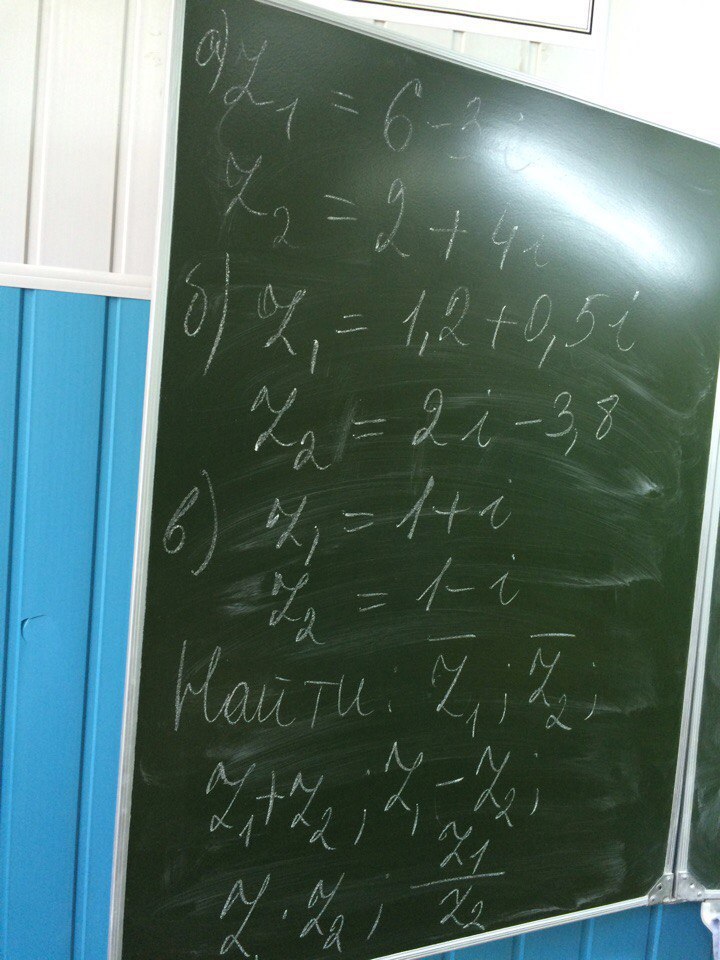 а) Z₁ = 6 - 3i
Z₂ = 2 + 4i
б) Z₁ = 1,2 + 0,5i
Z₂ = 2i - 3,8
в) Z₁ = 1 + i
Z₂ = 1 - i
Найти: Z̅₁; Z̅₂;
Z₁ + Z₂; Z₁ - Z₂;
Z₁ · Z₂; Z₁/Z₂